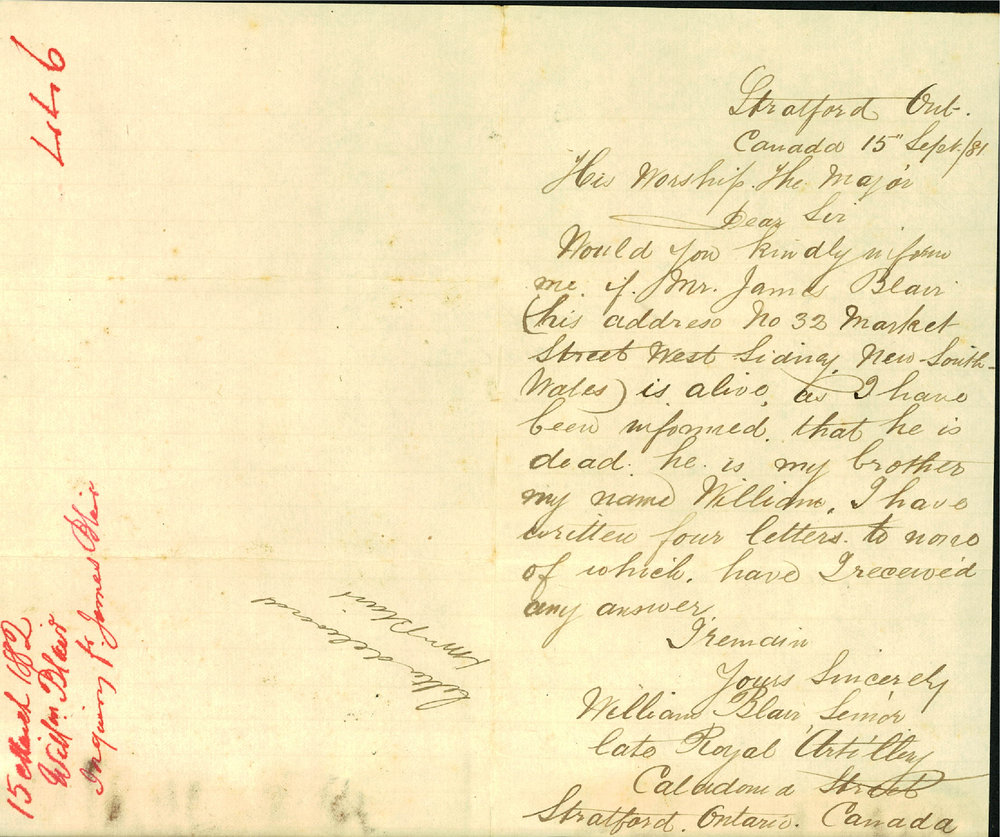 Stratford Ont.
Canada 15" Sept/81
His Worship. The Major
Dear Sir
Would you kindly inform
me. if. Mr. James Blair
(his address No 32 Market
Street West Sidney, New South-
Wales) is alive, as I have
been informed. that he is
dead. he. is my brother
my name William. I have
written four letters. to none
of which. have I received
any answer,
I remain
Yours Sincerely
William Blair, Senior
late Royal Artillery
Caladonia Street
Stratford. Ontario. Canada
15 March 1882
Willm Blair
Inquiry fr James Blair